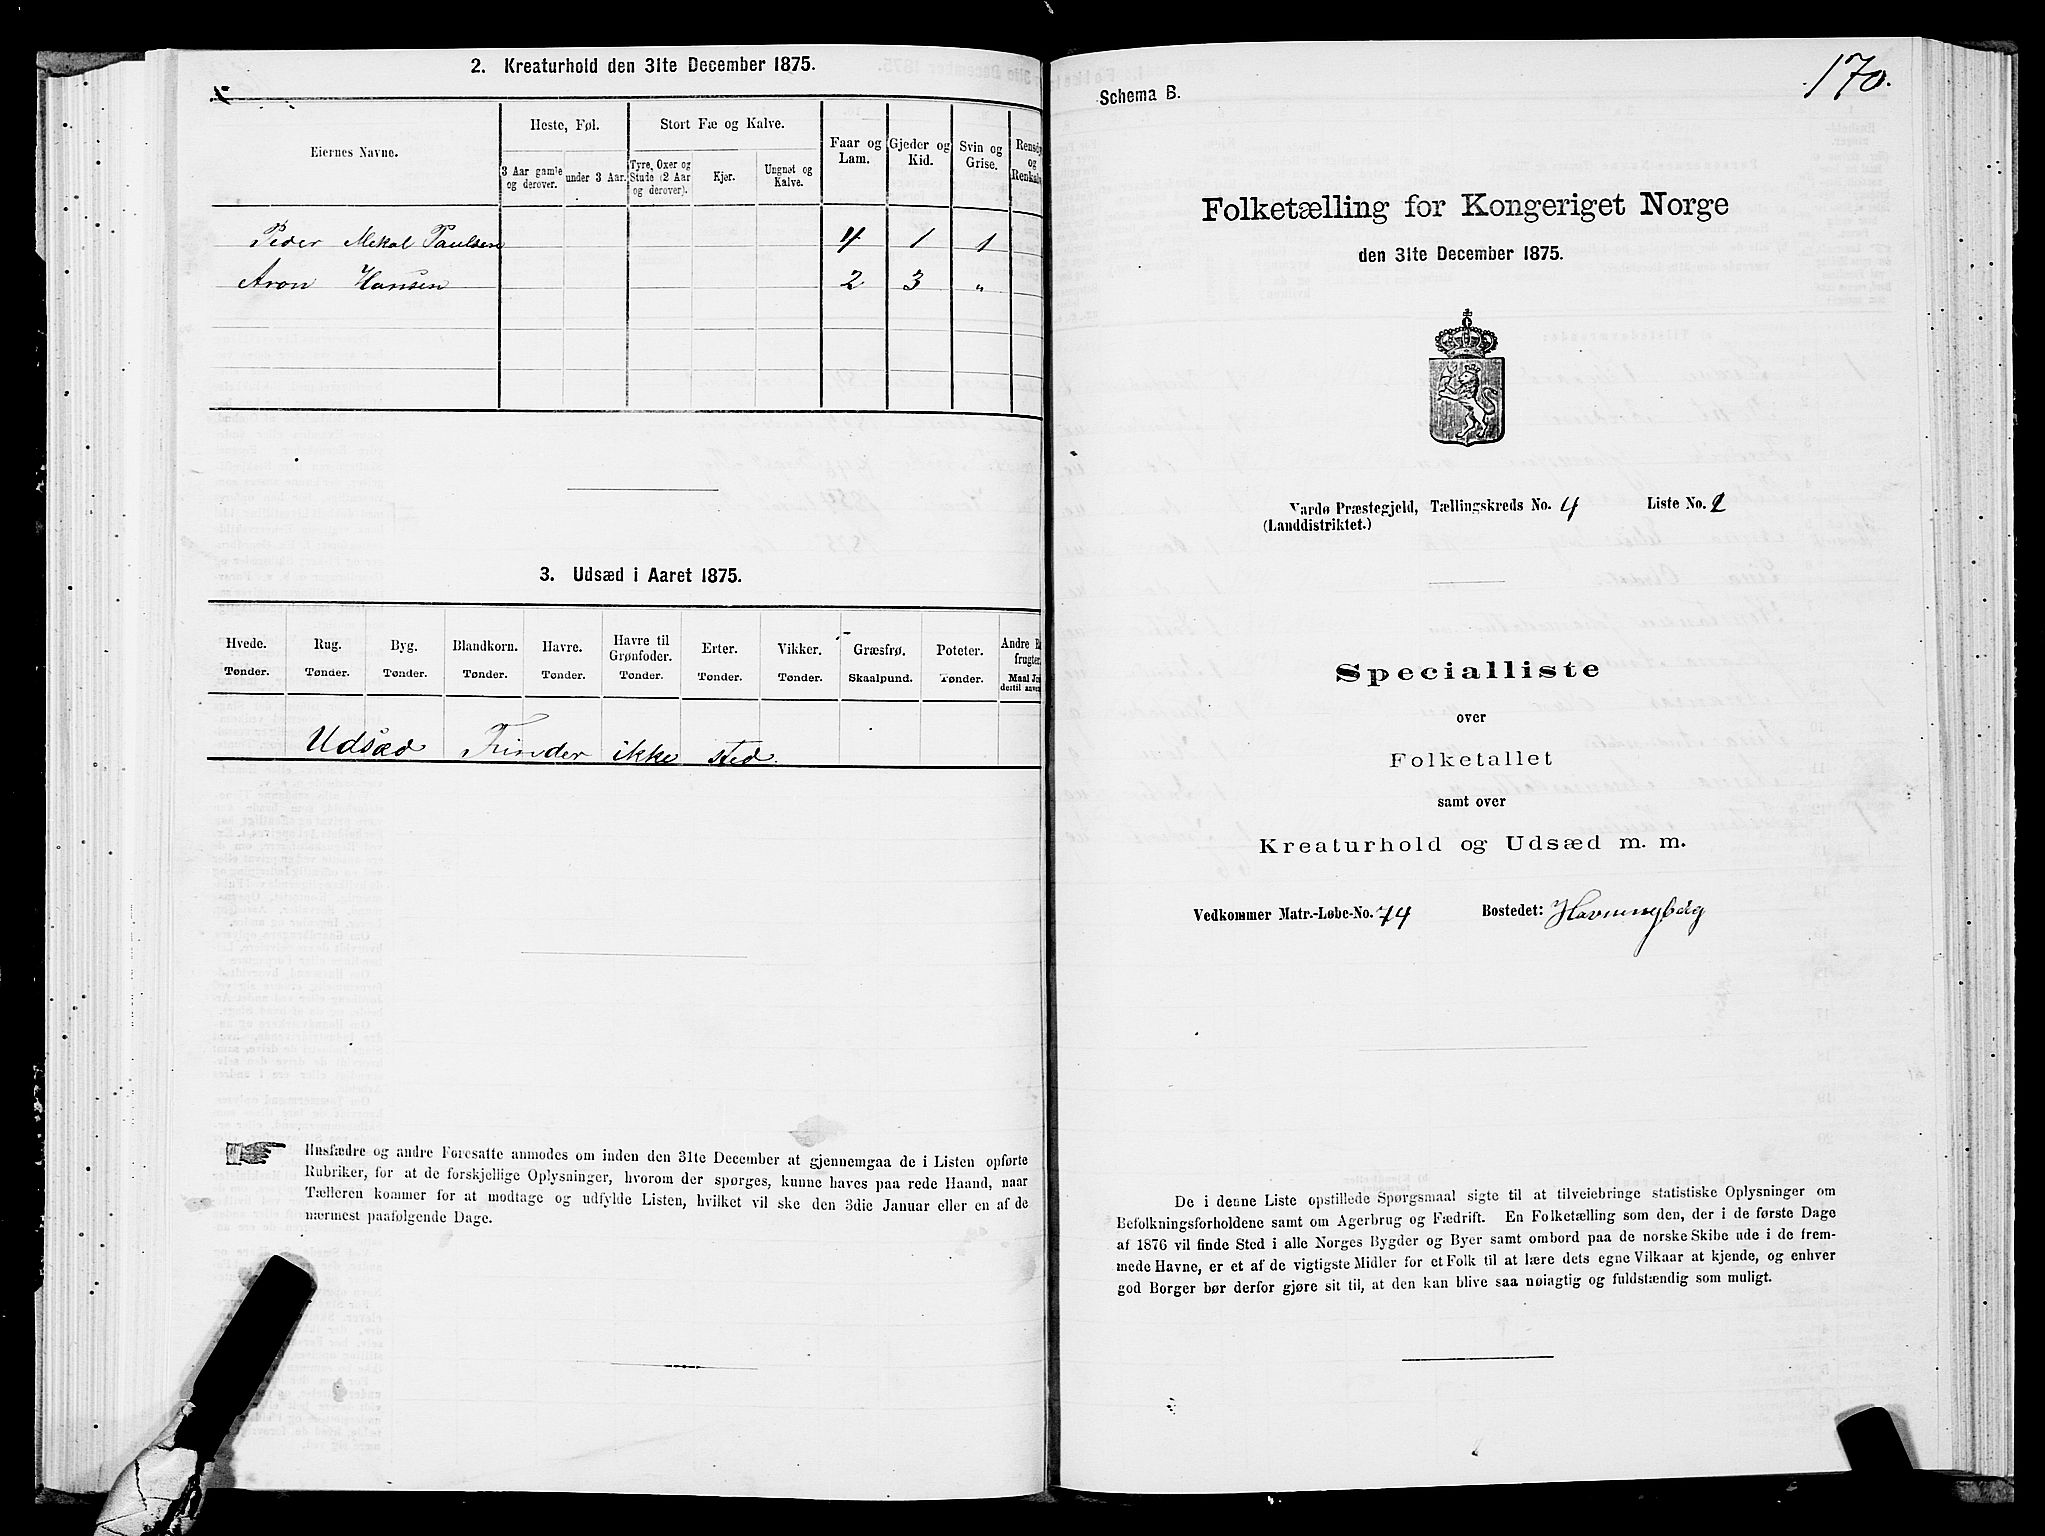 2. Kreaturhold den 31te December 1875.
Eiernes Navne.
Heste, Føl.
Stort Fæ og Kalve.
Faar og Lam.
Gjeder og Kid.
Svin og Grise.
Rensdyr og Renkalve
3 Aar gamle og derover.
under 3 Aar.
Tyre, Oxer og Stude (2 Aar og derover).
Kjer.
Ungnøt og Kalve.
Peder Mekal Paulsen 4 1 1
Aron Hansen 2 3 "
3. Udsæd i Aaret 1875.
Hvede. Rug. Byg. Blandkorn. Havre. Havre til Grønfoder. Erter. Vikker. Græsfrø. Poteter. Andre
frugter
Tønder. Tønder. Tønder. Tønder. Tønder. Tønder. Tønder. Tønder. Skaalpund. Tønder. Maal
dertil
Udsæd Finder ikke sted.
Husfædre og andre Foresatte anmodes om inden den 31te December at gjennemgaa de i Listen opførte
Rubriker, for at de forskjellige Oplysninger, hvorom der spørges, kunne haves paa rede Haand, naar
Tælleren kommer for at modtage og udfylde Listen, hvilket vil ske den 3die Januar eller en af de
nærmest paafølgende Dage.
170.
Schema B.
Folketælling for Kongeriget Norge
den 31te December 1875.
Vardø Præstegjeld, Tællingskreds No. 4 Liste No. 2
(Landdistriktet.)
Specialliste
over
Folketallet
samt over
Kreaturhold og Udsæd m. m.
Vedkommer Matr.-Løbe-No. 74 Bostedet: Havningberg
De i denne Liste opstillede Spørgsmaal sigte til at tilveiebringe statistiske Oplysninger om
Befolkningsforholdene samt om Agerbrug og Fædrift. En Folketælling som den, der i de første Dage
af 1876 vil finde Sted i alle Norges Bygder og Byer samt ombord paa de norske Skibe ude i de frem-
mede Havne, er et af de vigtigste Midler for et Folk til at lære dets egne Vilkaar at kjende, og enhver
god Borger bør derfor gjøre sit til, at den kan blive saa nøiagtig og fuldstændig som muligt.